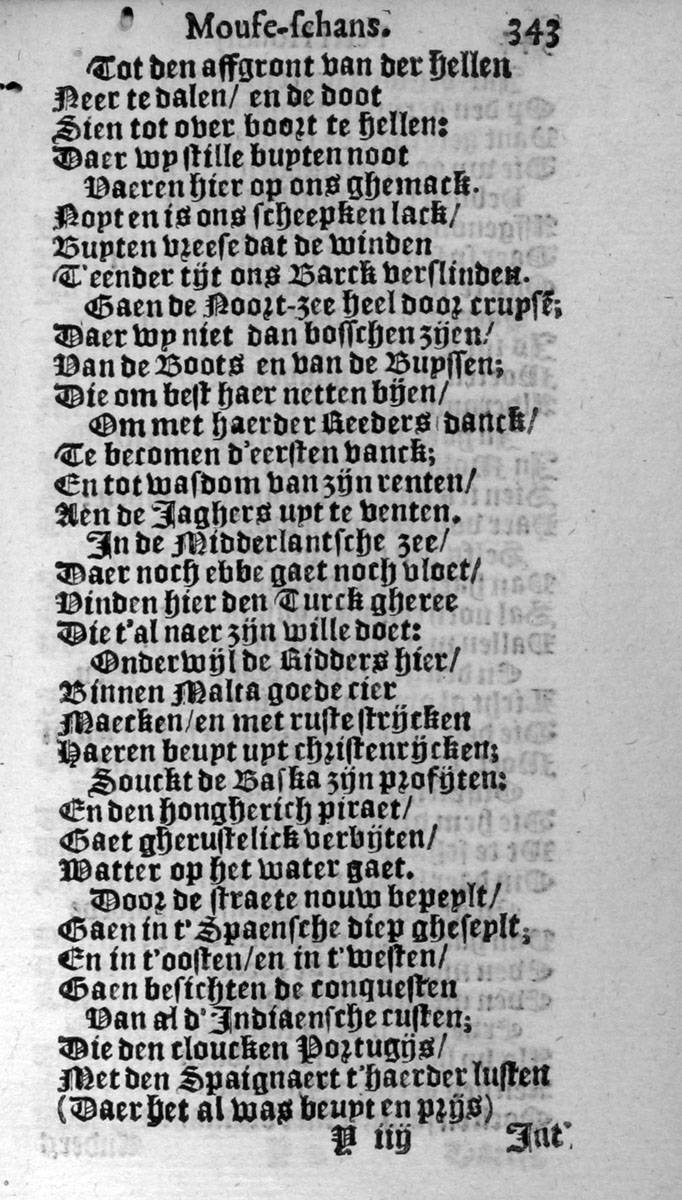 Mouse-schans. 343
Tot den affgront van der hellen
Neer te dalen/ en de doot
Sien tot over boort te hellen:
Daer wy stille buyten noot
Vaeren hier op ons ghemack.
Noyt en is ons scheepken lack/
Buyten vreese dat de winden
T'eender tijt ons Barck verslinden.
Gaen de Noort-zee heel door cruyst;
Daer wy niet dan bosschen zijen/
Van de Boots en van de Buyssen;
Die om best haer netten bijen/
Om met haerder Reeders danck/
Te becomen d'eersten vanck;
En tot wasdom van zijn renten/
Aen de Jaghers uyt te venten.
In de Midderlantsche zee/
Daer noch ebbe gaet noch vloet/
Vinden hier den Turck gheree
Die t'al naer zijn wille doet:
Onderwijl de Ridders hier/
Binnen Malta goede cier
Maecken/en met ruste strijcken
Haeren beuyt uyt christenrijcken;
Souckt de Baska zijn profijten:
En den hongherich piraet/
Gaet gherustelick verbijten/
Watter op het water gaet.
Door de straete nouw bepeylt/
Gaen in t'Spaensche diep gheseylt;
En in t'oosten/en in t'westen/
Gaen besichten de conquesten
Van al d'Indiaensche custen;
Die den cloucken Portugijs/
Met den Spaignaert t'haerder lusten
(Daer het al was beuyt en prijs)
Y iiij Int